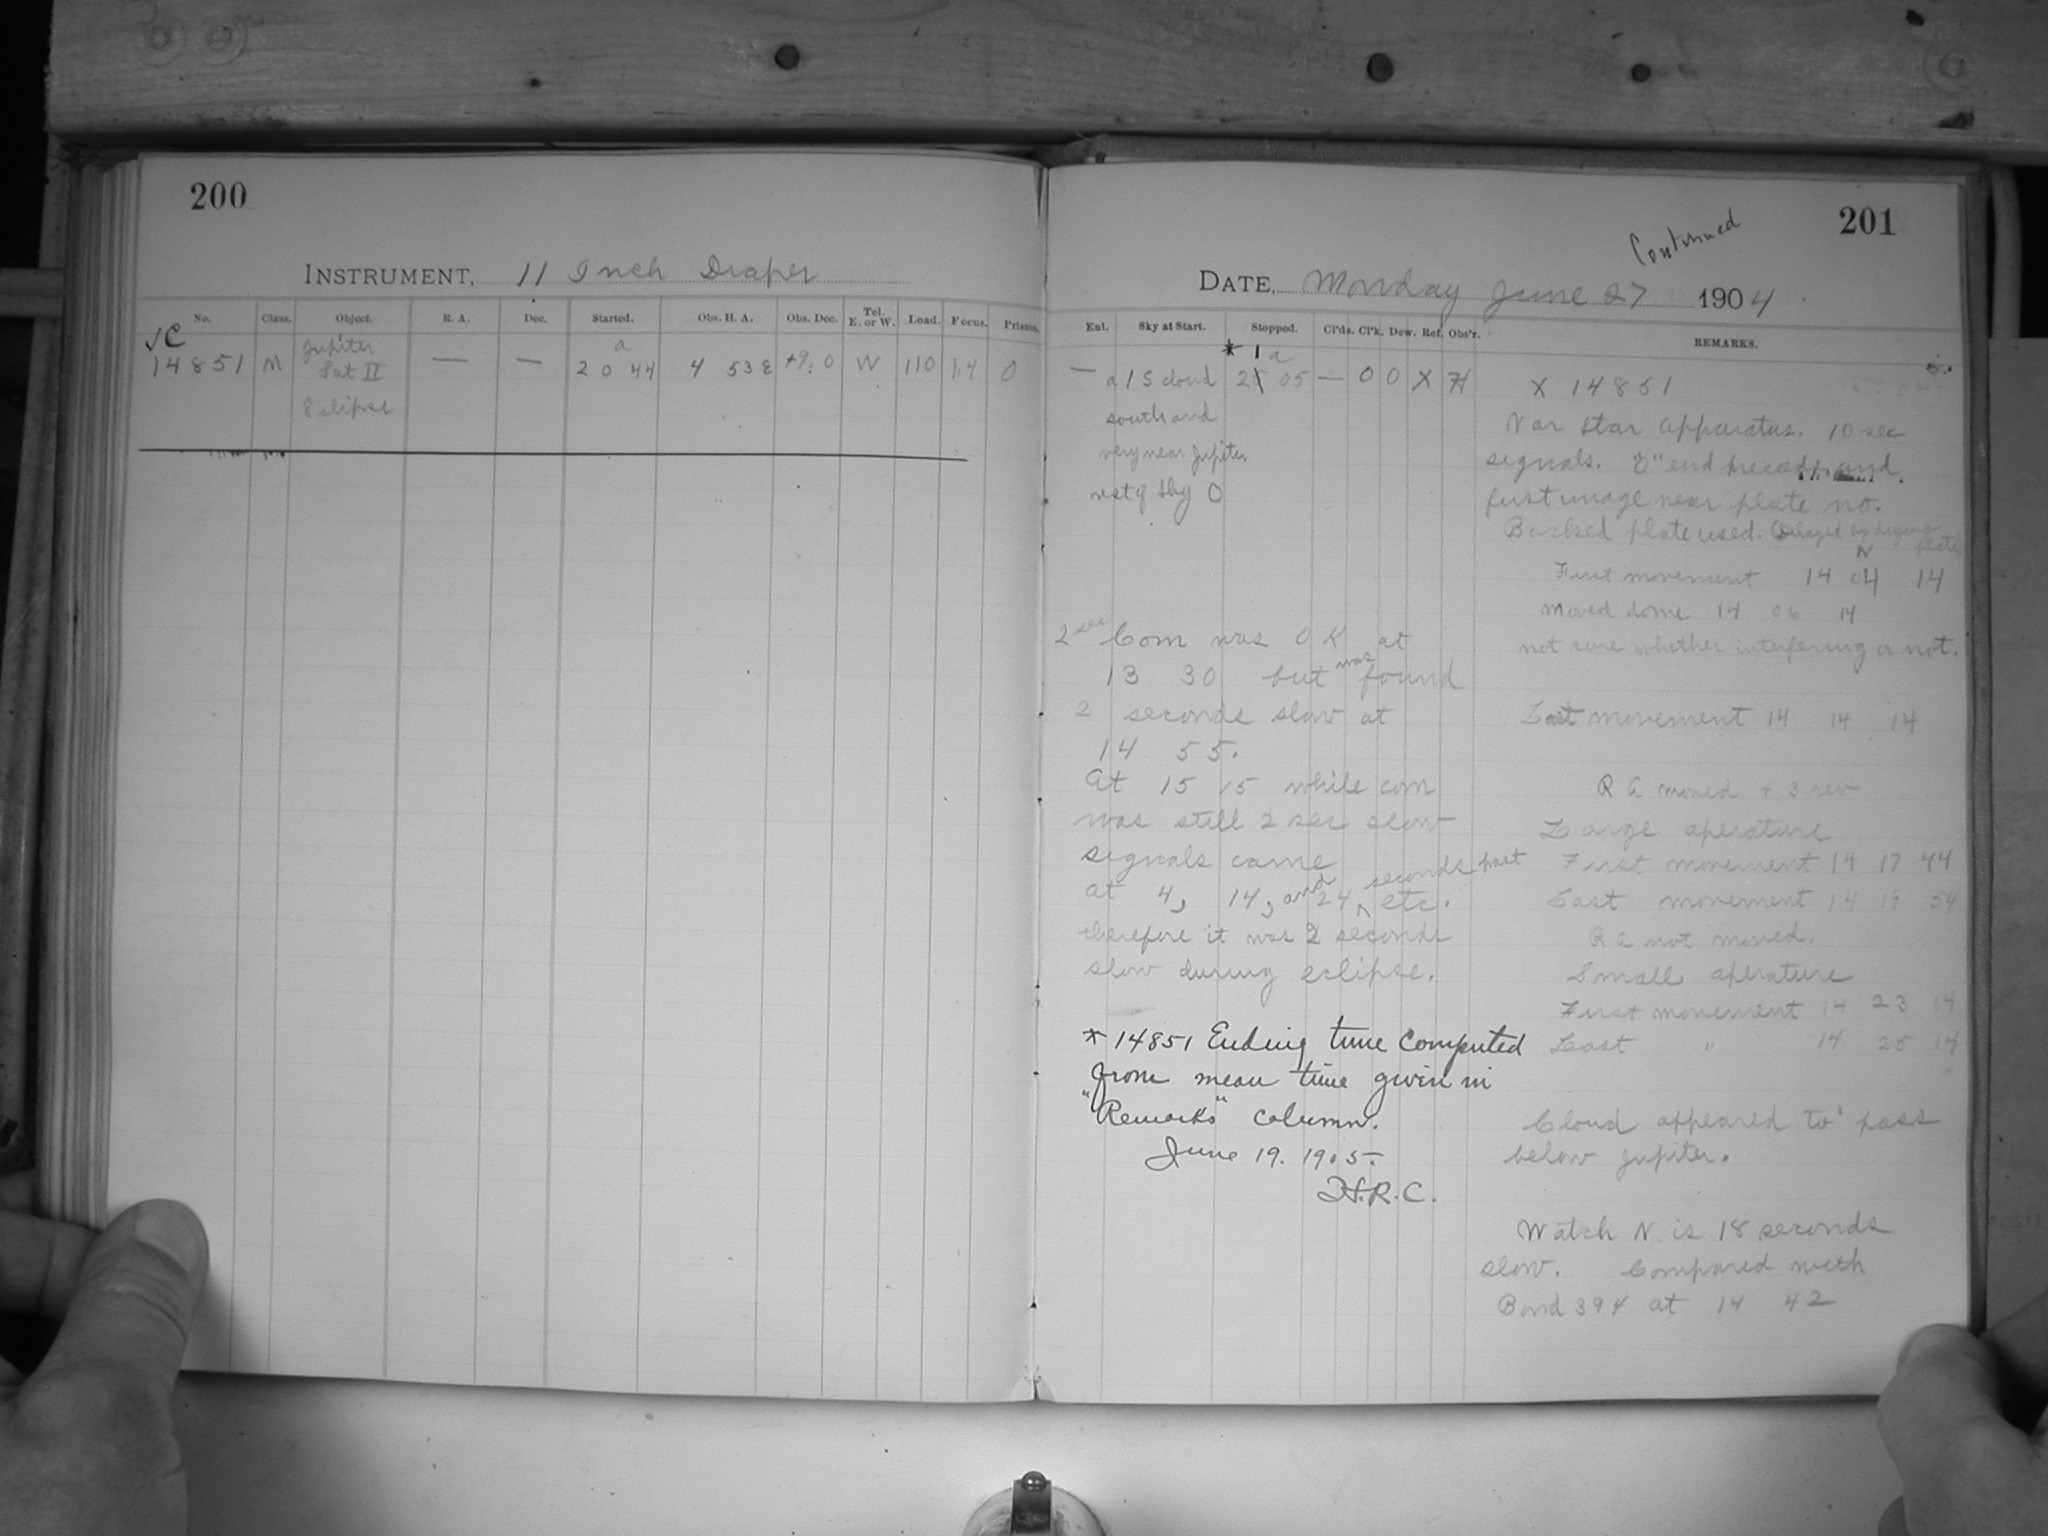 200
INSTRUMENT, 11 Inch Draper
No. Class. Object. R. A. Dec. Started. Obs. H. A. Obs. Dec. Tel. E. or W. Load. Focus. Prisms.
14851 M Jupiter Sat II Eclipse — — 20 44 a 4 53 E +9.0 W 110 1.4 0
201
Continued
DATE, Monday June 27 1904
Enl. Sky at Start. Stopped. Cl'ds. Cl'k. Dew. Ref. Obs'r. REMARKS.
— a 1 S cloud * 21 05 a — 0 0 X H
south and
very near Jupiter
rest of sky 0
2 sec Com was O K at
13 30 but was found
2 seconds slow at
14 55.
At 15 15 while com
was still 2 sec slow
signals came
at 4, 14, and 24 seconds past etc.
therefore it was 2 seconds
slow during eclipse.
* 14851 Ending time Computed
from mean time given in
"Remarks" column.
June 19. 1905.
H.R.C.
X 14851
Var Star apparatus. 10 sec
signals. end
first image near plate no.
Backed plate used.
N
First movement 14 04 14
Moved dome 14 06 14
not sure whether interfering or not.
Last movement 14 14 14
R A moved + 3 rev
Large aperature
First movement 14 17 44
Last movement 14 19 54
R A not moved.
Small aperature
First movement 14 23 14
Last " 14 25 14
Cloud appeared to pass
below Jupiter.
Watch N is 18 seconds
slow. Compared with
Bond 394 at 14 42